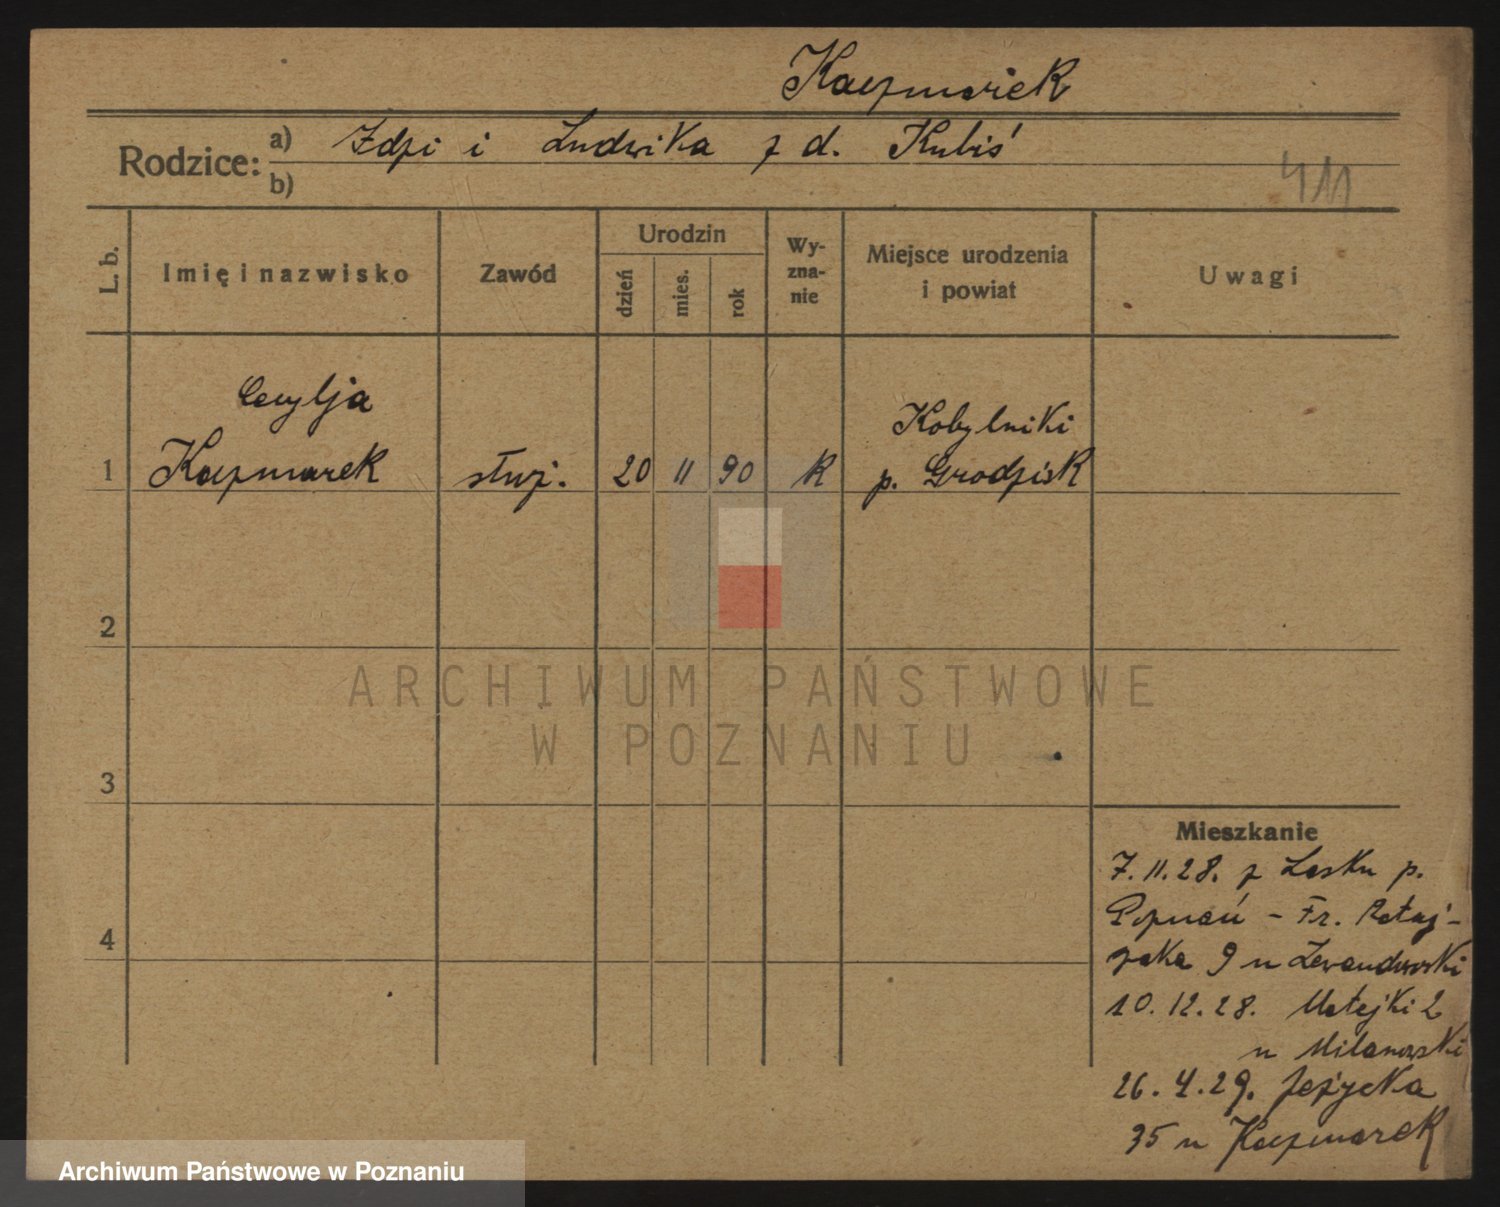 Kaczmarek
Rodzice: a) i Ludwika z d. Kubiś
b)
411
L. b.
Imię i nazwisko
Zawód
Urodzin
dzień
mies.
rok
Wy-
zna-
nie
Miejsce urodzenia
i powiat
Uwagi
Cecylja
1 Kaczmarek służ. 20 11 90 k
Kobylniki
p. Grodzisk
2
3
4
ARCHIWUM PAŃSTWOWE
W POZNANIU
Mieszkanie
7.11.28. z Lasku p.
Poznań - Fr. Rataj-
czaka 9 u Lewandowski
10.12.28. Matejki 2
u Milanowski
26.4.29. Jeżycka
35 u Kaczmarek
Archiwum Państwowe w Poznaniu